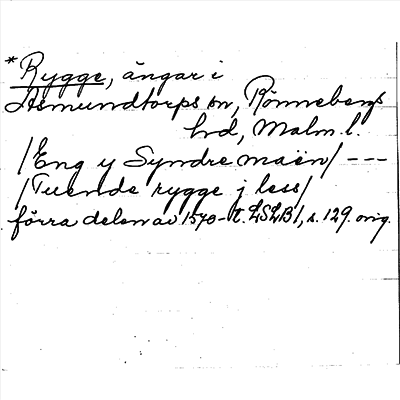 *Rygge, ängar i
Asmundtorps sn, Rönnebergs
hd, Malm. l.
/Eng y Syndre maën/ ---
/Tuende rygge j less/
förra delen av 1570-t. LSLB1, s. 129. orig.